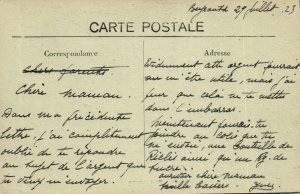 29 Juillet 23
CARTE POSTALE
Correspondance
Adresse
Chers parents
Cher maman.
Dans ma précédente
lettre, j'ai complètement
oublié de te répondre
au sujet de l'argent que
tu veux m'envoyer.
Décidément cette argent pourrait
m'être utile, mais j'ai
peur que cela ne te mette
dans l'embarras.
Maintenant pourrais-tu
joindre au colis que tu
une bouteille de
ainsi qu'un kg. de
sucre.
chère maman
mille baisers